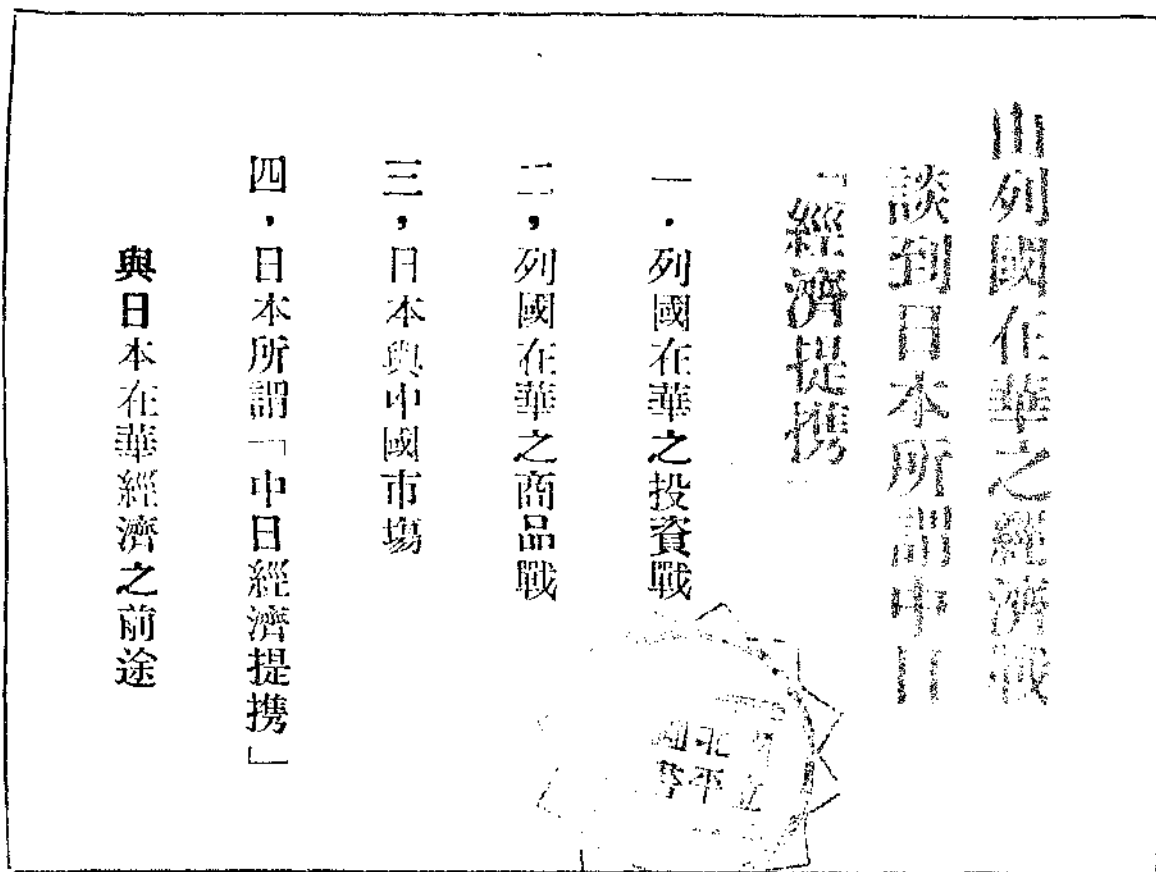 由列國在華之經濟戰
談到日本所謂中日
「經濟提携」
一．列國在華之投資戰
二，列國在華之商品戰
三，日本與中國市場
四，日本所謂「中日經濟提携」
與日本在華經濟之前途
立
北平
圖書